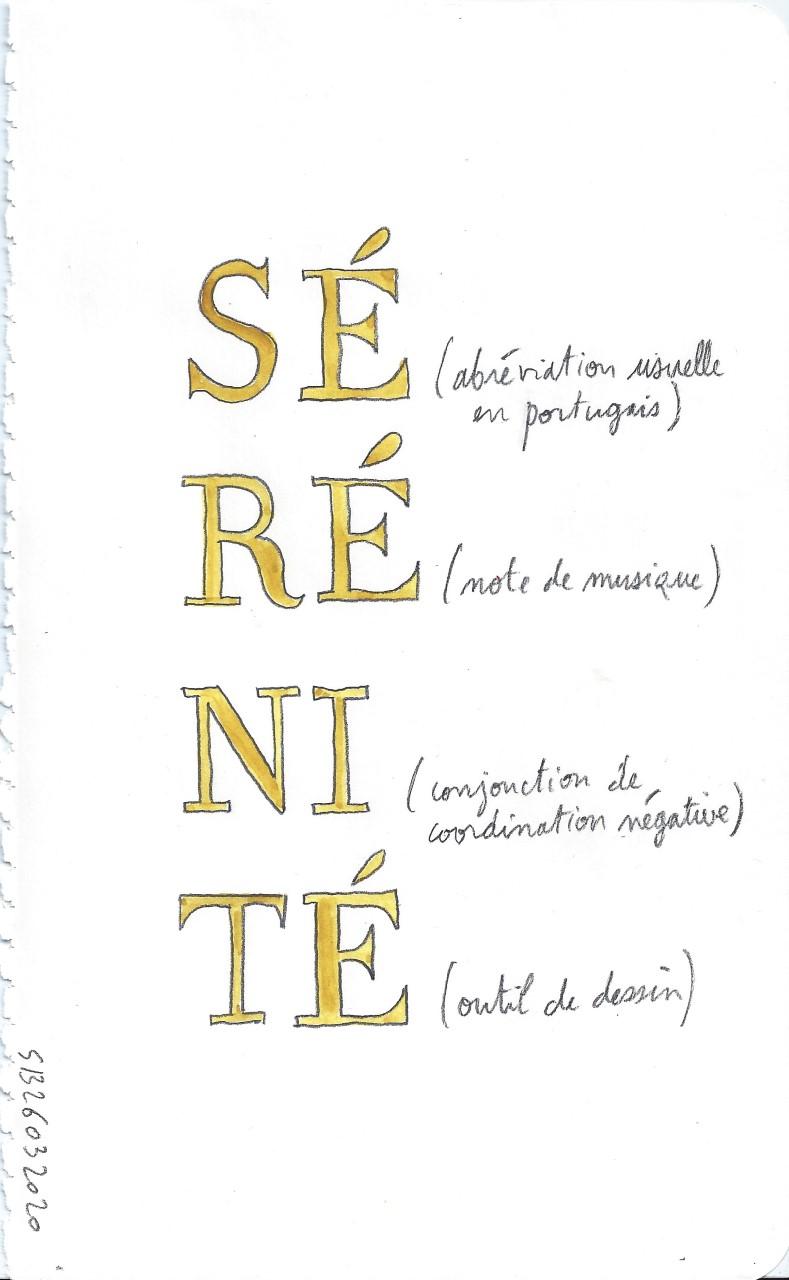 SÉ
(abréviation usuelle
en portugais)
RÉ
(note de musique)
NI
(conjonction de
coordination négative)
TÉ
(outil de dessin)
SB26032020